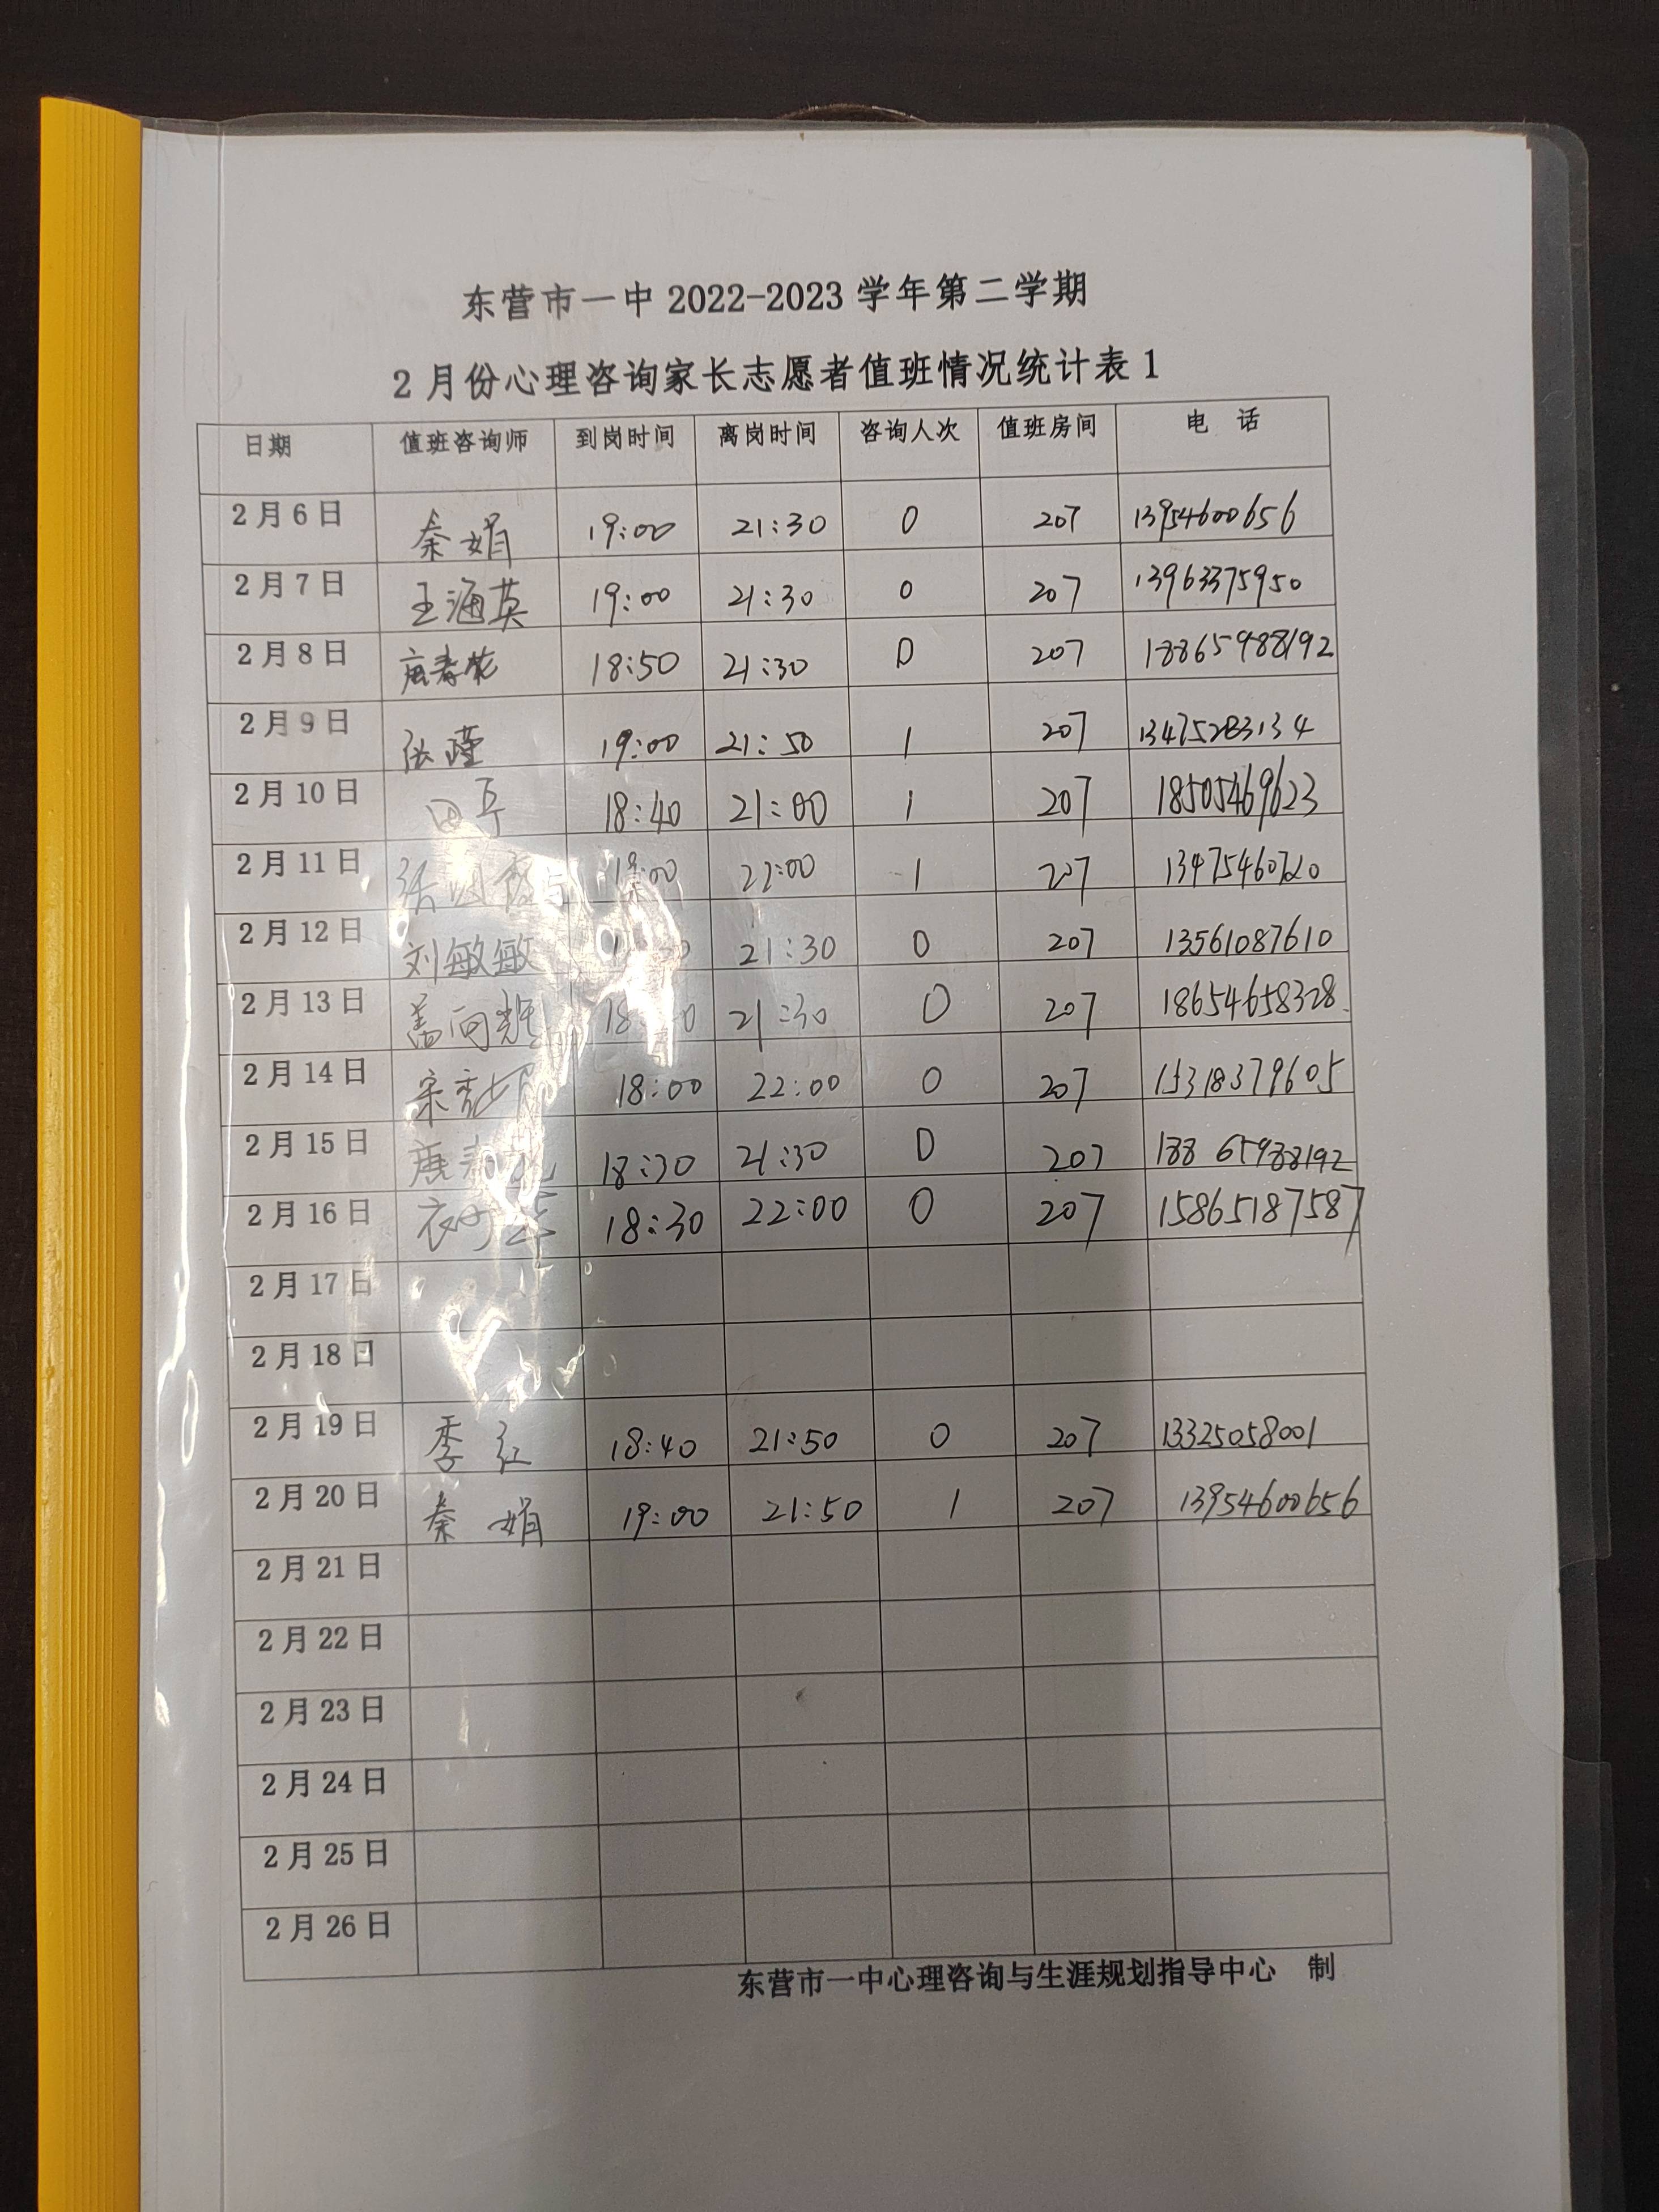 东营市一中 2022-2023 学年第二学期
2 月份心理咨询家长志愿者值班情况统计表 1
日期 值班咨询师 到岗时间 离岗时间 咨询人次 值班房间 电 话
2 月 6 日 秦娟 19:00 21:30 0 207 13954600656
2 月 7 日 王海英 19:00 21:30 0 207 13963375950
2 月 8 日 唐春花 18:50 21:30 0 207 18865988192
2 月 9 日 张瑾 19:00 21:50 1 207 13475283134
2 月 10 日 18:40 21:00 1 207 18505469623
2 月 11 日 22:00 1 207 13475460720
2 月 12 日 刘敏敏 21:30 0 207 13561087610
2 月 13 日 盖向辉 21:30 0 207 18654658328
2 月 14 日 18:00 22:00 0 207 15318379605
2 月 15 日 唐春花 18:30 21:30 0 207 18865988192
2 月 16 日 18:30 22:00 0 207 15865187587
2 月 17 日
2 月 18 日
2 月 19 日 季红 18:40 21:50 0 207 13325058001
2 月 20 日 秦娟 19:00 21:50 1 207 13954600656
2 月 21 日
2 月 22 日
2 月 23 日
2 月 24 日
2 月 25 日
2 月 26 日
东营市一中心理咨询与生涯规划指导中心 制